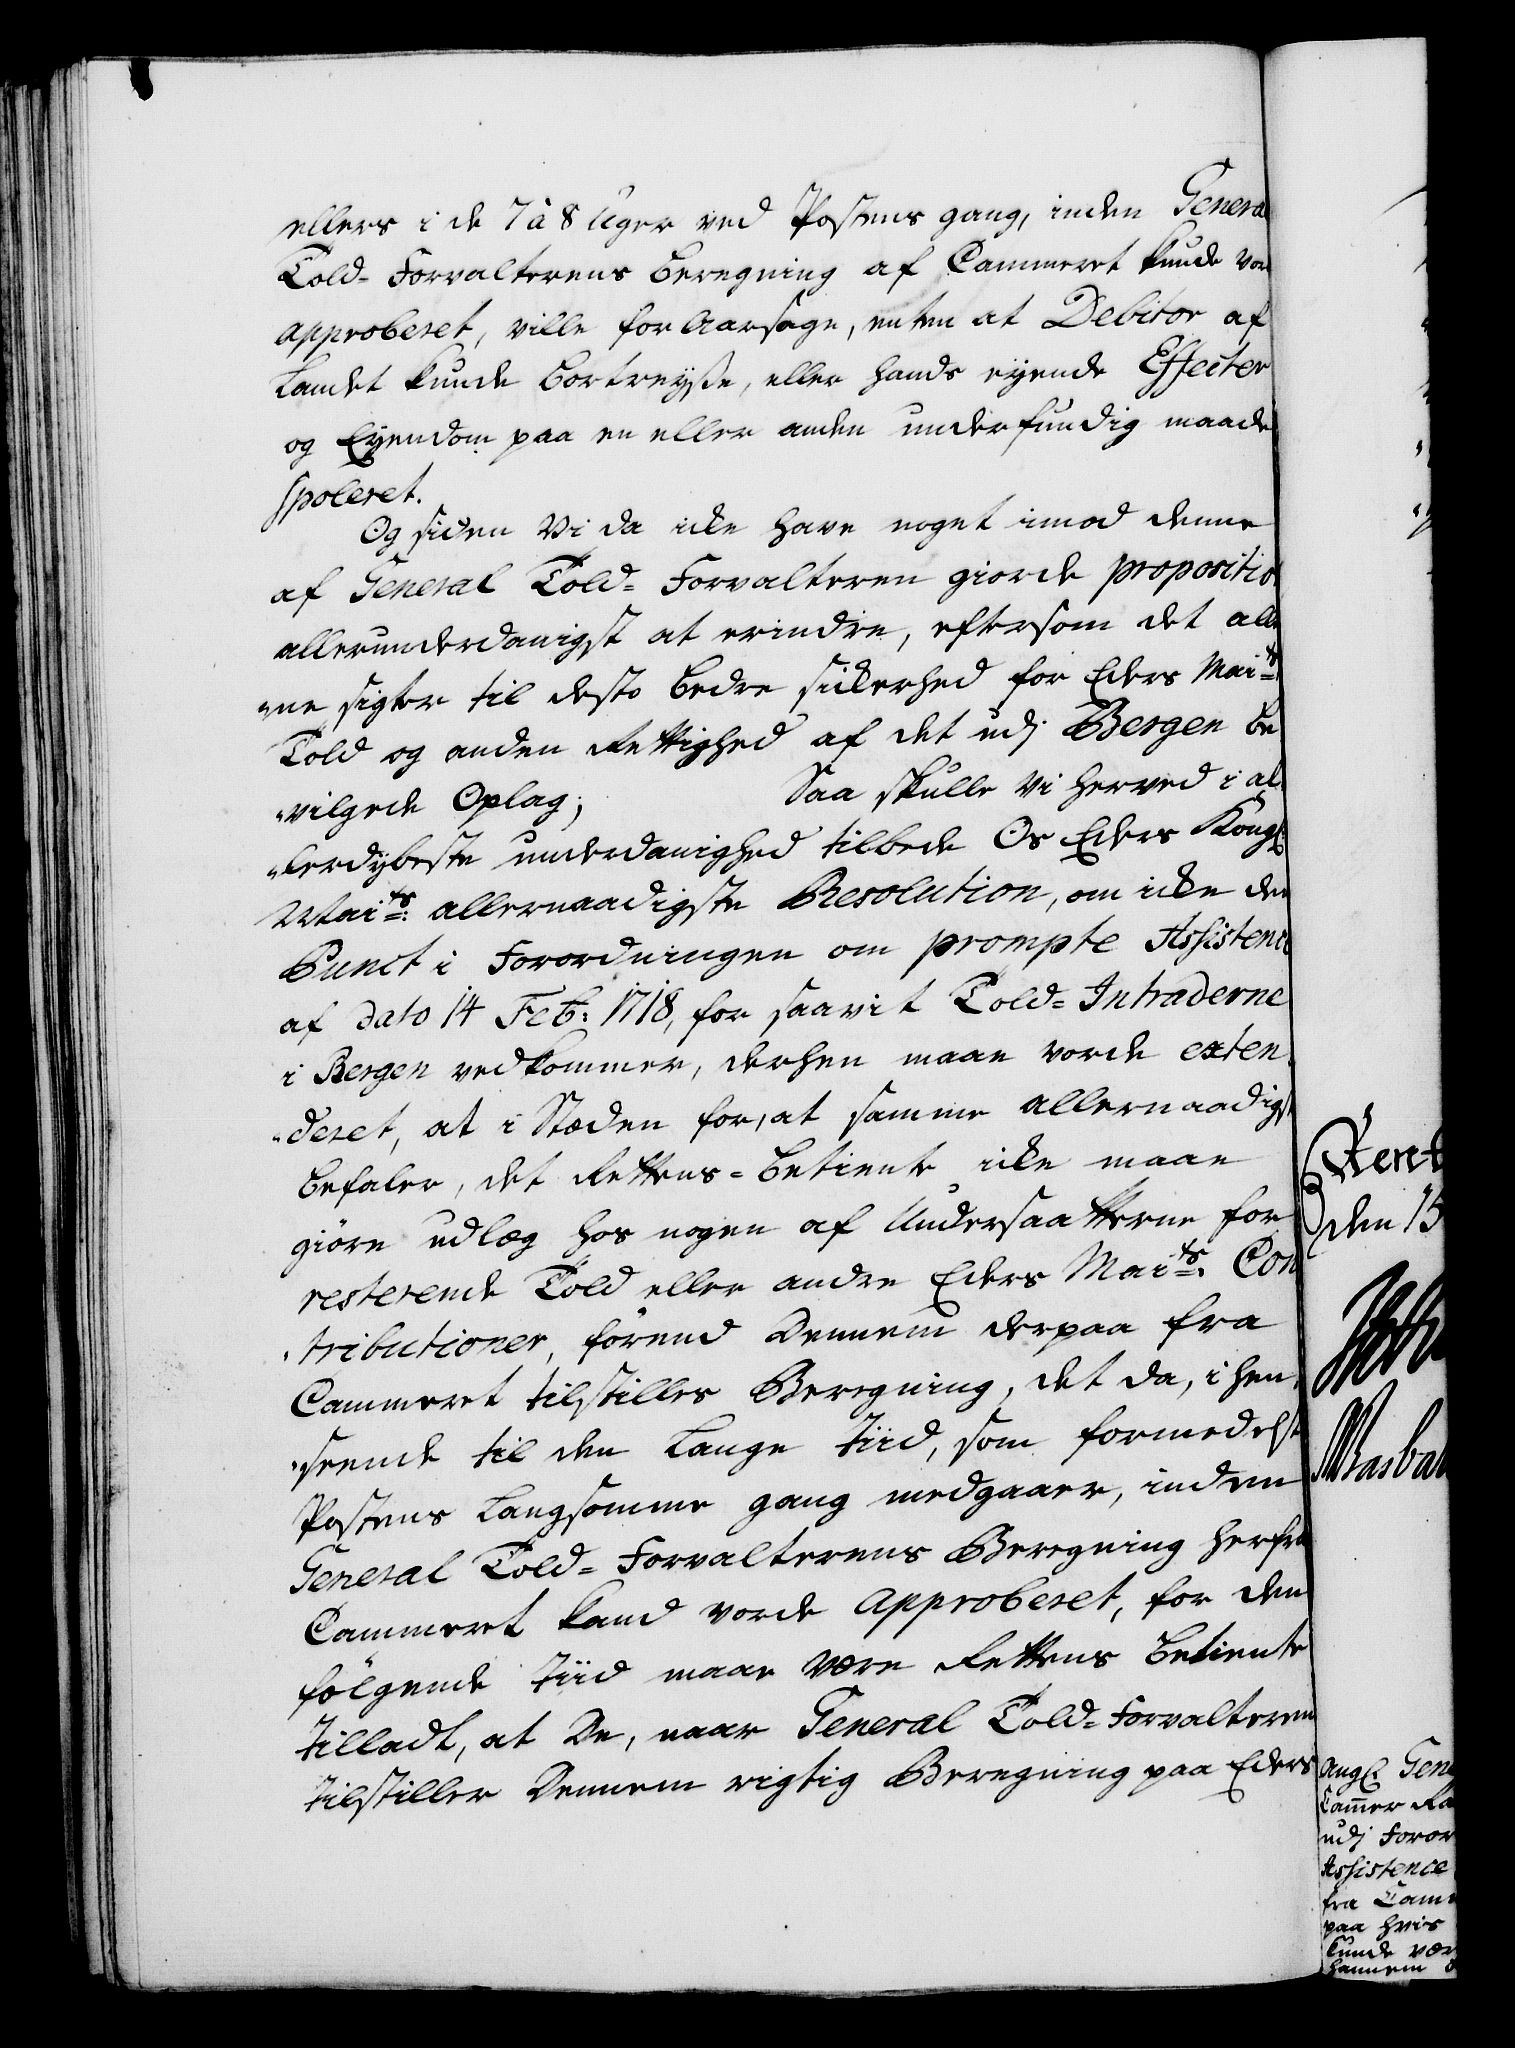 ellers i de 7 à 8 Uger ved Postens gang, inden General
Told= Forvalterens Beregning af Cammeret kunde vor
approberet, ville foraarsage, enten at Debitor af
Landet kunde bortreyse, eller hands eyende Effecter
og Eyendom paa en eller anden underfundig maade
spoleret.
Og siden Vi da icke have noget imod denne
af General Told= Forvalteren giorde proposition
allerunderdanigst at erindre, eftersom det alle
"ne sigter til desto bedre sickerhed for Eders Maits
Told og anden Rettighed af det udj Bergen be
"vilgede Oplag; Saa skulle Vi herved i al
"lerdybeste underdanighed tilbede Os Eders Kongl:
Maits: allernaadigste Resolution, om icke den
Punct i Forordningen om prompte Assistence
af dato 14 Feb: 1718, for saavit Told= Intraderne
i Bergen vedkommer, derhen maae vorde exten
"deret, at i Stæden for, at samme allernaadigst
befaler, det Rettens= betiente icke maae
giøre udlæg hos nogen af Undersaatterne for
resterende Told eller andre Eders Maits: Con
"tributioner, førend Dennem derpaa fra
Cammeret tilstilles Beregning, det da, i hen
"seende til den Lange Tiid, som formedelst
Postens Langsomme gang medgaaer, inden
General Told= Forvalterens Beregning herfra
Cammeret kand vorde approberet, for den
følgende Tiid maae være Rettens betiente
tilladt, at De, naar General Told= Forvalteren
tilstiller Dennem rigtig Beregning paa Eders
den 15
Angl: Gene
Cammer Ra
udj Foror
Assistence
fra Cam
paa hvis
kunde vær
hannem